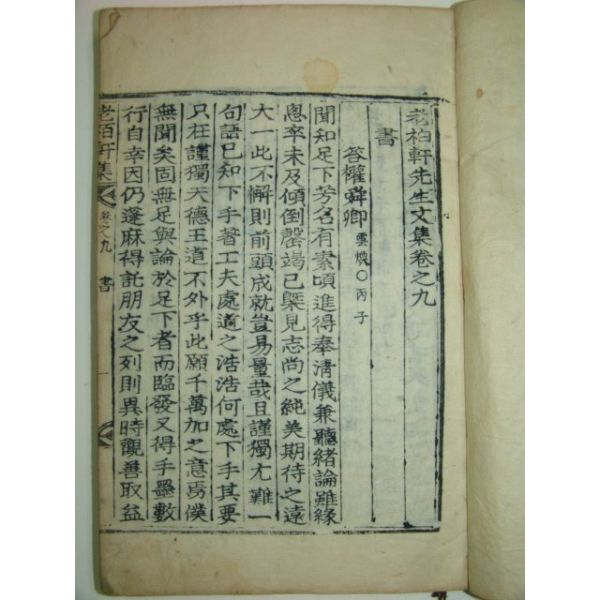 老柏軒先生文集卷之九
書
答權舜卿 雲煥○丙子
聞知足下芳名有素頃進得奉清儀兼聽緖論雖緣
悤卒未及傾倒罄竭已槩見志尚之純美期待之遠
大一此不懈則前頭成就豈易量哉且謹獨尤難一
句語已知下手著工夫處道之浩浩何處下手其要
只在謹獨天德王道不外乎此願千萬加之意焉僕
無聞矣固無足與論於足下者而臨發又得手墨數
行自幸因仍蓬麻得託朋友之列則異時觀善取益
老栢軒集 卷之九 書